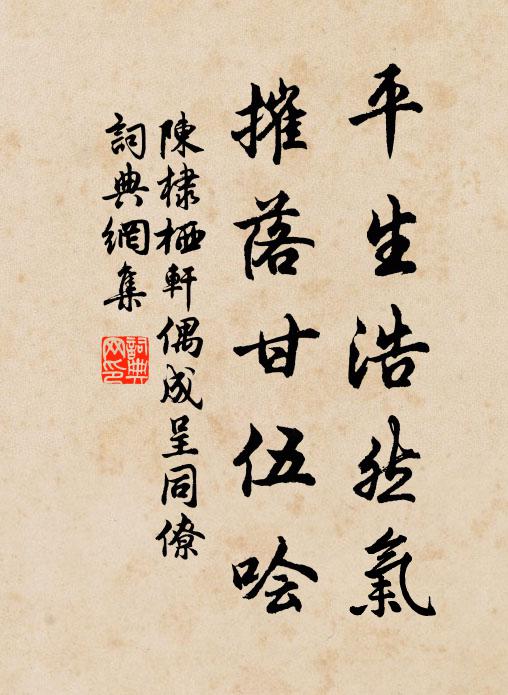 平生浩然氣
摧落甘伍噲
陳棣栖軒偶成呈同僚
詞典網集
詞典網印